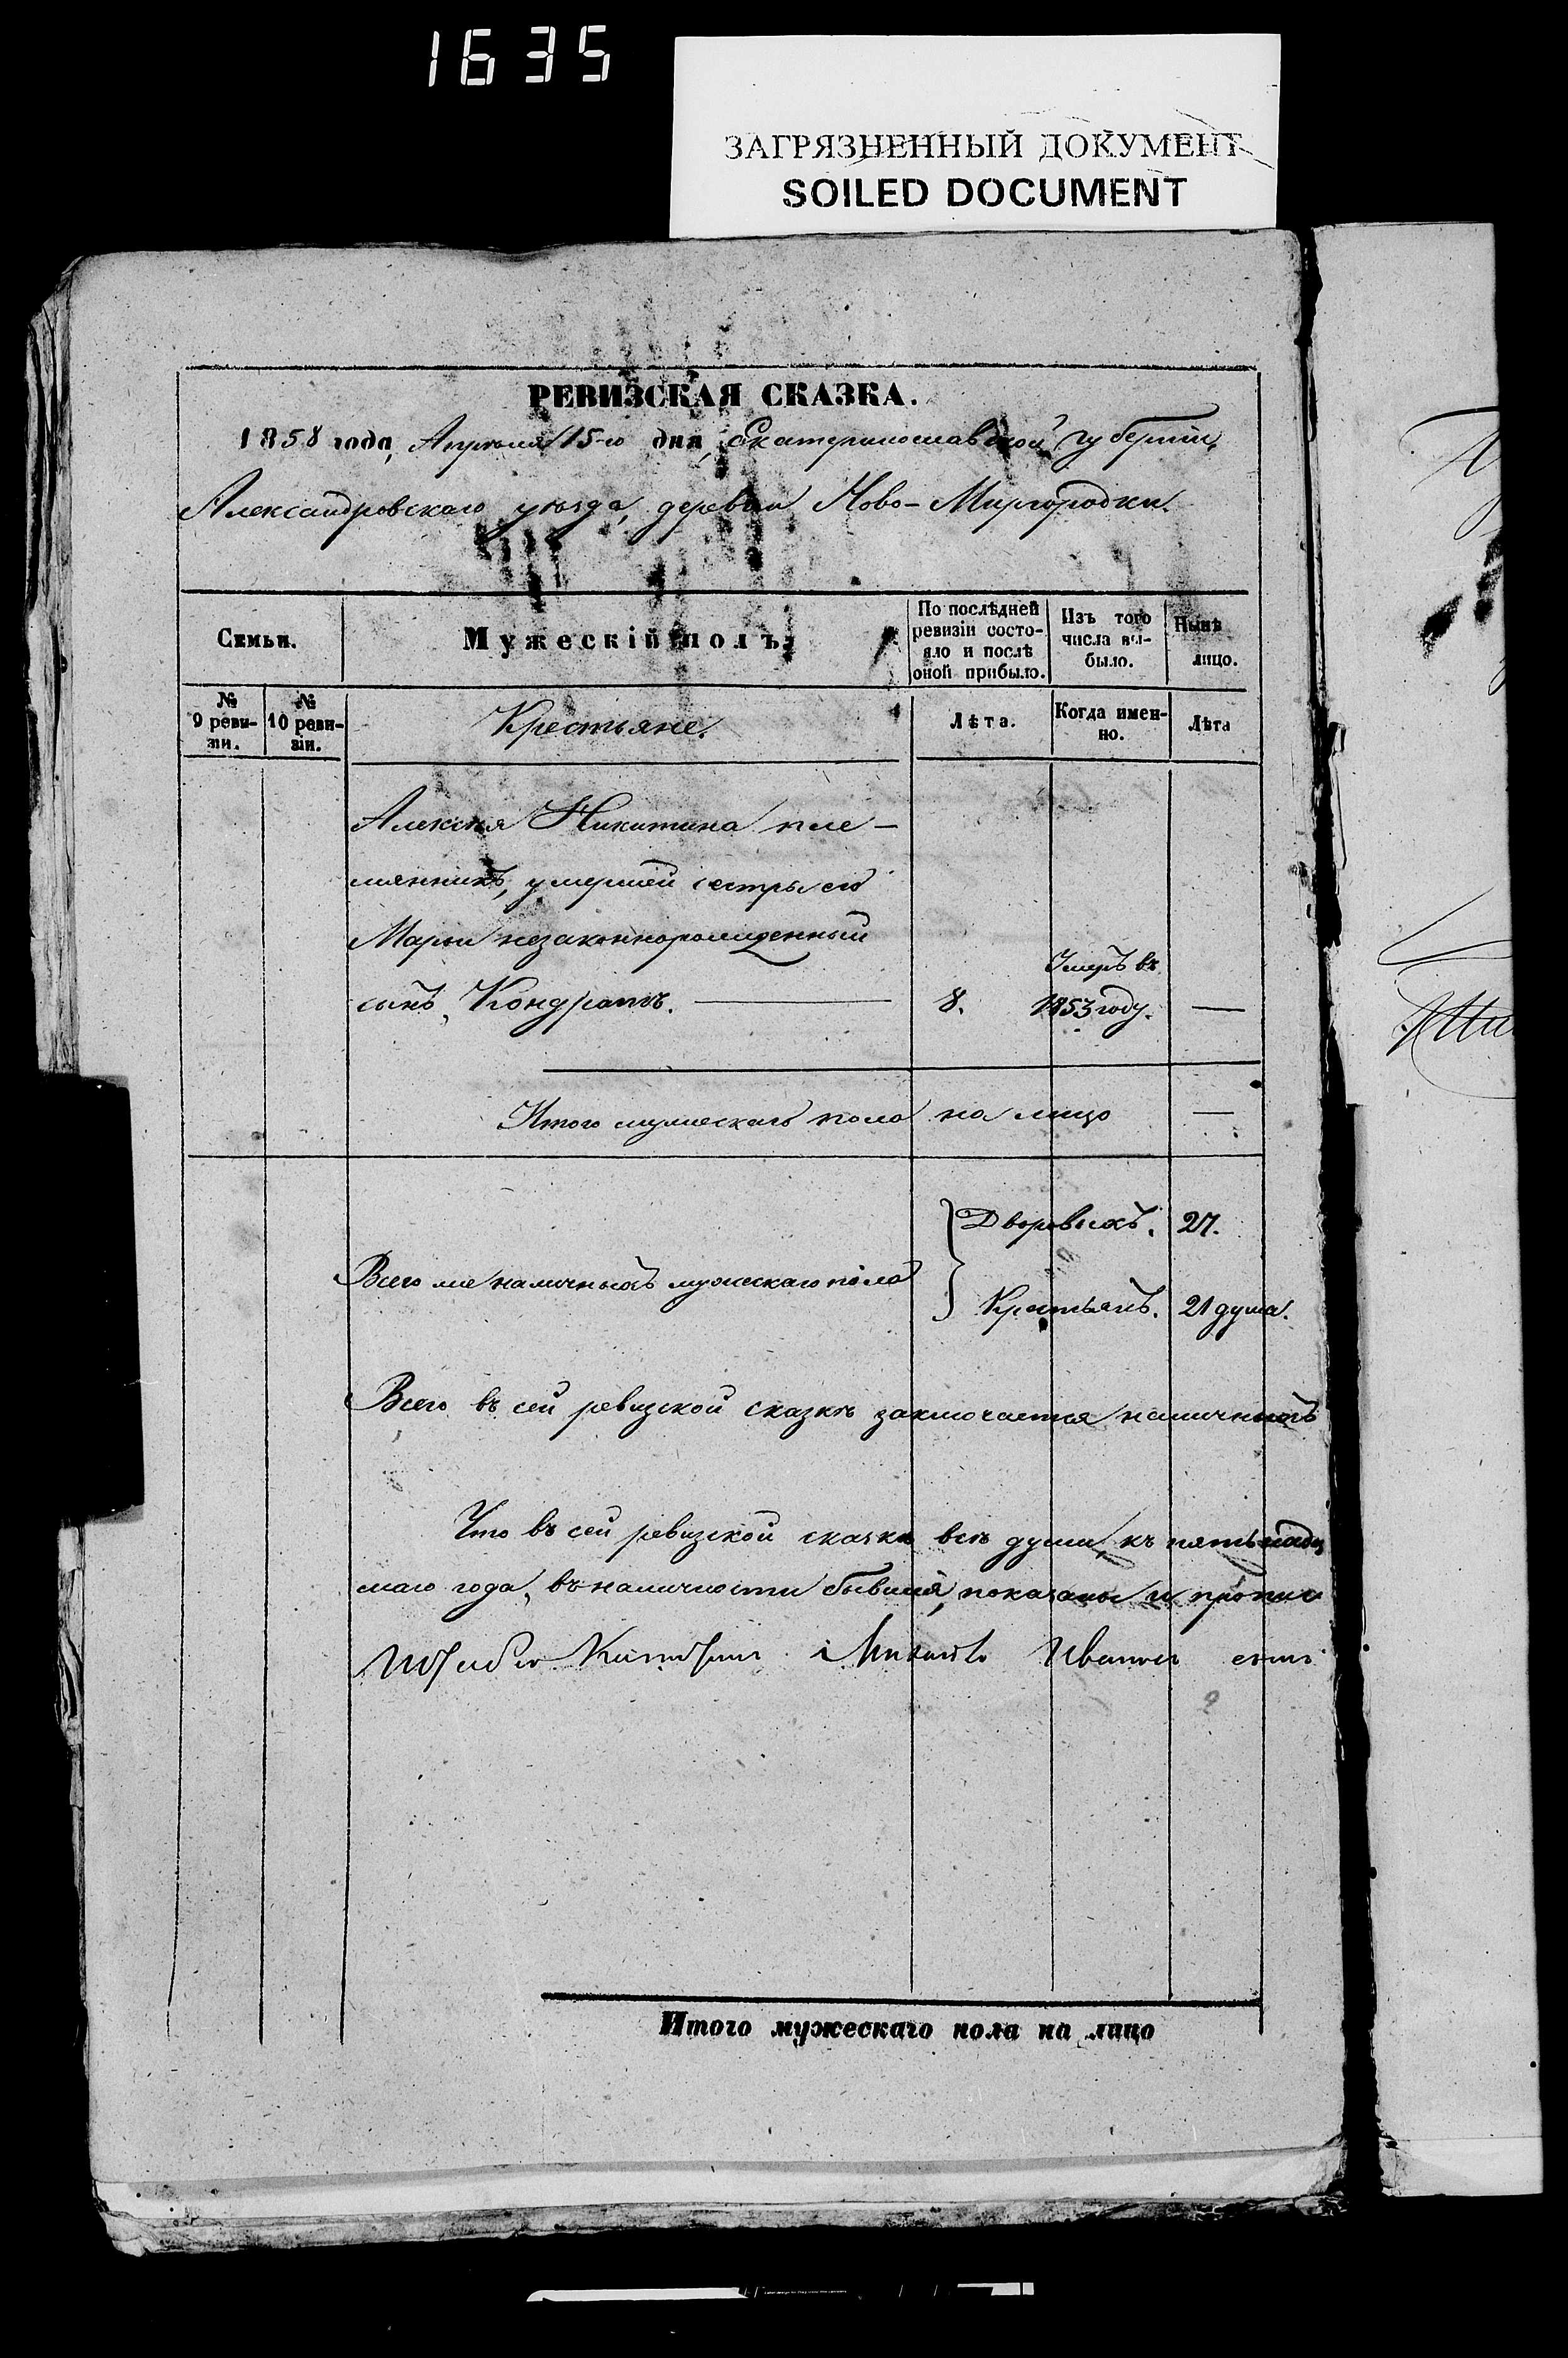 1635
ЗАГРЯЗНЕННЫЙ ДОКУМЕНТ
SOILED DOCUMENT
РЕВИЗСКАЯ СКАЗКА.
1858 года, Апрѣля 15-го дня, Екатеринославской губерніи,
Александровскаго уѣзда, деревни Ново-Миргородки.
Семьи.
Мужескій полъ.
По послѣдней ревизіи состояло и послѣ оной прибыло.
Изъ того числа выбыло.
Нынѣ лицо.
№ 9 ревизіи.
№ 10 ревизіи.
Крестьяне.
Лѣта.
Когда именно.
Лѣта
Алексѣя Никитина пле-
мянникъ, умершей сестры его
Марьи незаконнорожденный
сынъ, Кондратъ. 8. Умеръ въ 1853 году. —
Итого мужескаго пола на лицо —
Всего же наличныхъ мужескаго пола
Дворовыхъ. 27.
Крестьянъ. 21 душа.
Всего въ сей ревизской сказкѣ заключается наличныхъ
Что въ сей ревизской сказкѣ всѣ души, къ пятьнадц
маго года, въ наличности бывшія, показаны и
Иванов
Итого мужескаго пола на лицо